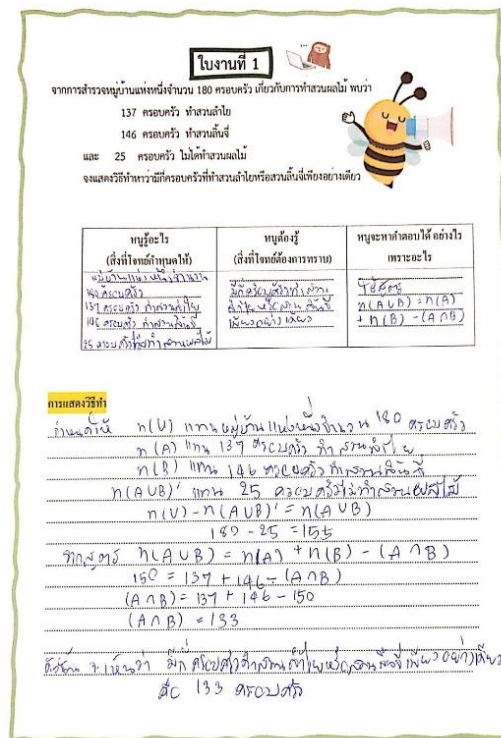 ใบงานที่ 1
จากการสำรวจหมู่บ้านแห่งหนึ่งจำนวน 180 ครอบครัว เกี่ยวกับการทำสวนผลไม้ พบว่า
137 ครอบครัว ทำสวนลำไย
146 ครอบครัว ทำสวนลิ้นจี่
และ 25 ครอบครัว ไม่ได้ทำสวนผลไม้
จงแสดงวิธีทำหาว่ามีกี่ครอบครัวที่ทำสวนลำไยหรือสวนลิ้นจี่เพียงอย่างเดียว
หนูรู้อะไร
(สิ่งที่โจทย์กำหนดให้)
หมู่บ้านแห่งหนึ่งจำนวน
180 ครอบครัว
137 ครอบครัว ทำสวนลำไย
146 ครอบครัว ทำสวนลิ้นจี่
25 ครอบครัวไม่ทำสวนผลไม้
หนูต้องรู้
(สิ่งที่โจทย์ต้องการทราบ)
มีกี่ครอบครัวทำสวน
ลำไยหรือสวนลิ้นจี่
เพียงอย่างเดียว
หนูจะหาคำตอบได้ อย่างไร
เพราะอะไร
ใช้สูตร
n(A∪B) = n(A)
+ n(B) - (A∩B)
การแสดงวิธีทำ
กำหนดให้ n(U) แทนหมู่บ้านแห่งหนึ่งจำนวน 180 ครอบครัว
n(A) แทน 137 ครอบครัว ทำสวนลำไย
n(B) แทน 146 ครอบครัว ทำสวนลิ้นจี่
n(A∪B)' แทน 25 ครอบครัวไม่ทำสวนผลไม้
n(U) - n(A∪B)' = n(A∪B)
180 - 25 = 155
จากสูตร n(A∪B) = n(A) + n(B) - (A∩B)
150 = 137 + 146 - (A∩B)
(A∩B) = 137 + 146 - 150
(A∩B) = 133
ว่า มีกี่ครอบครัวทำสวนลำไยหรือสวนลิ้นจี่เพียงอย่างเดียว
คือ 133 ครอบครัว